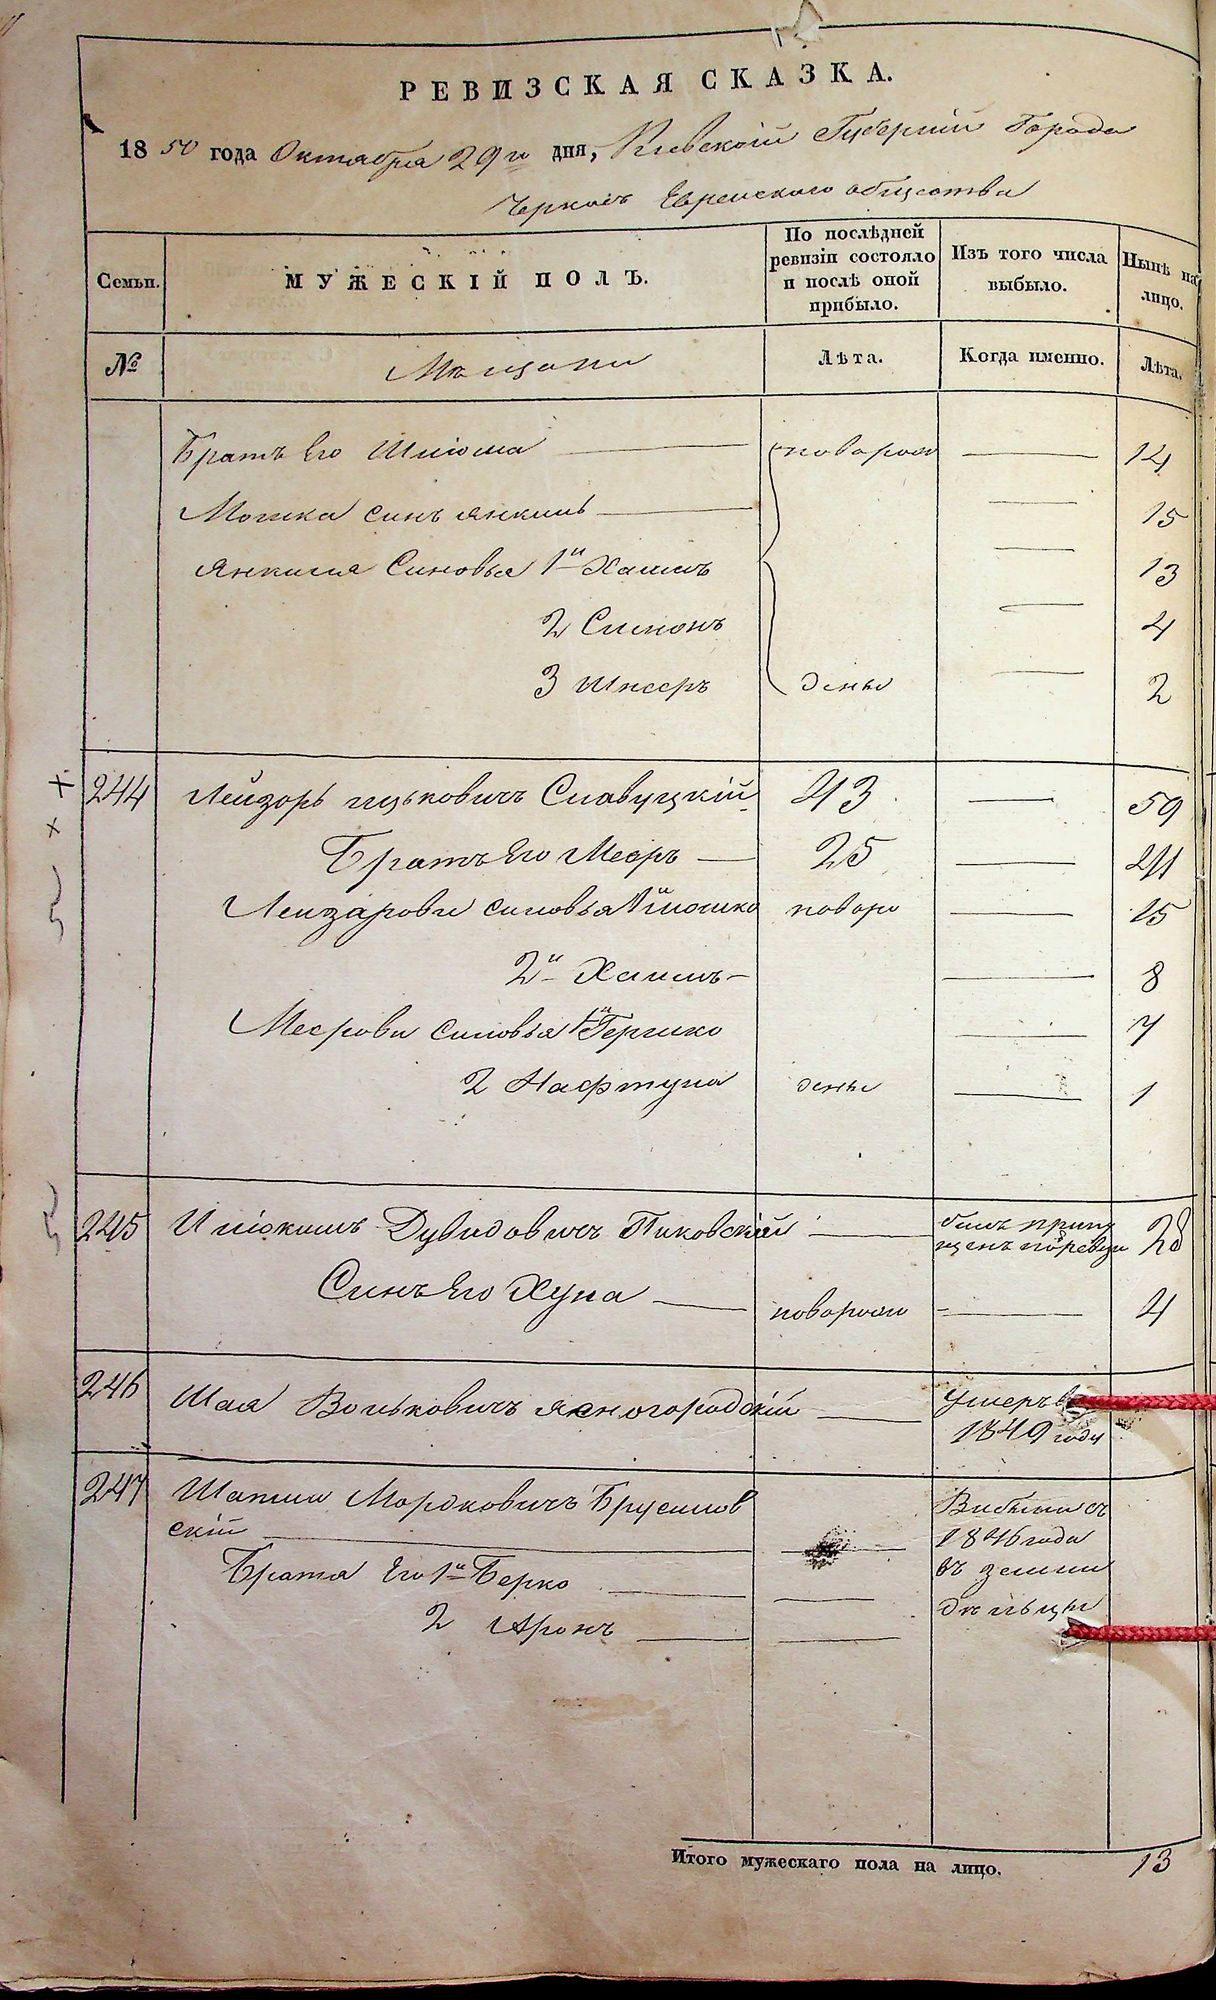 РЕВИЗСКАЯ СКАЗКА.
1850 года Октября 29го дня, Киевской Губернии Города
Черкасъ Еврейского общества
Семьи.
МУЖЕСКІЙ ПОЛЪ.
По послѣдней ревизіи состояло и послѣ оной прибыло.
Изъ того числа выбыло.
Нынѣ на лицо.
№
Мѣщани
Лѣта.
Когда именно.
Лѣта.
Братъ Его Шлiома — новорож — 14
Мошка синъ Янкиль — 15
Янкиля Синовья 1й Хаимъ — 13
2 Симонъ — 4
3 — 2
244 Лейзоръ Ицьковичъ Славуцкій 43 — 59
Братъ Его Мееръ — 25 — 41
Лейзарови синовья 1й Мошко новоро — 15
2й Хаимъ — 8
Меерови синовья 1й Гершко — 7
2 Нафтула — 1
245 Дувидовичъ Пиковскій — билъ пропу
щенъ 28
Синъ Его Хуна — новорож — 4
246 Шая Вольковичъ Ясногородскій — Умеръ в
1849 году
247 Мордковичъ Брусилов
скій — Вибили съ
1846 года
Братя Его 1й Берко — въ земли
2 Аронъ — дельцы
Итого мужескаго пола на лицо. 13